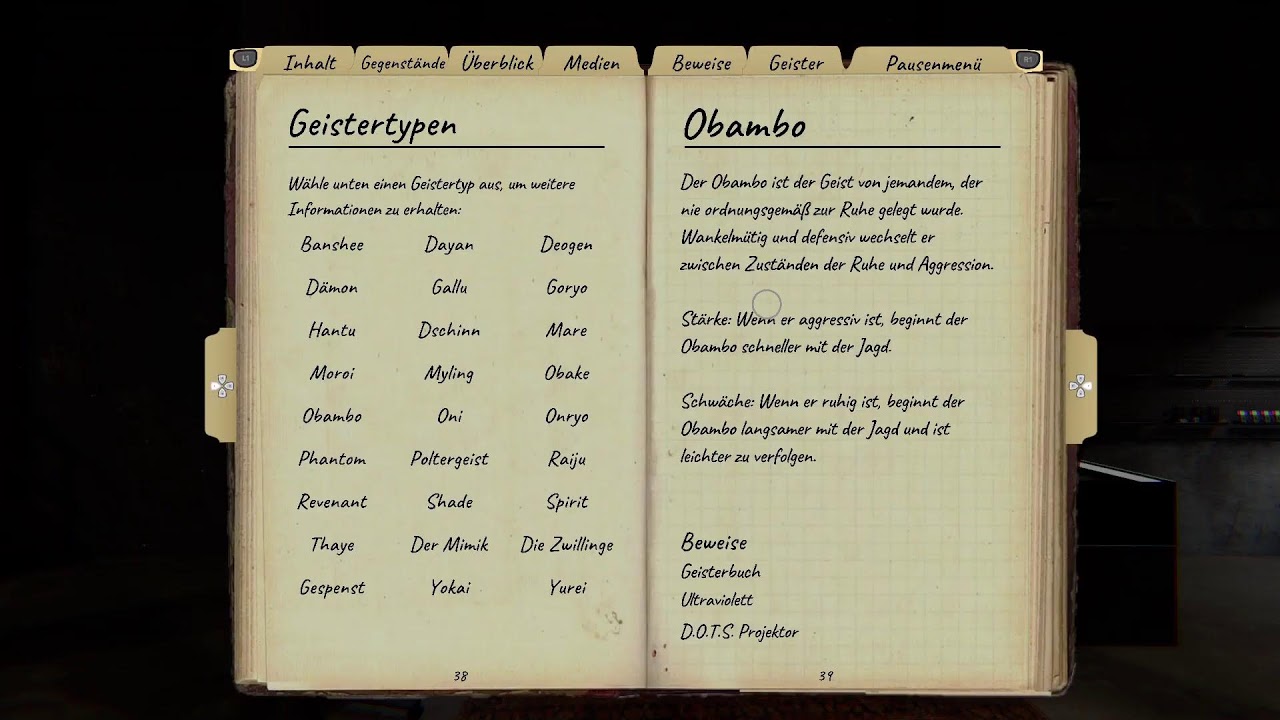 L1
Inhalt Gegenstände Überblick Medien Beweise Geister Pausenmenü
R1
Geistertypen
Wähle unten einen Geistertyp aus, um weitere
Informationen zu erhalten:
Banshee Dayan Deogen
Dämon Gallu Goryo
Hantu Dschinn Mare
Moroi Myling Obake
Obambo Oni Onryo
Phantom Poltergeist Raiju
Revenant Shade Spirit
Thaye Der Mimik Die Zwillinge
Gespenst Yokai Yurei
38
Obambo
Der Obambo ist der Geist von jemandem, der
nie ordnungsgemäß zur Ruhe gelegt wurde.
Wankelmütig und defensiv wechselt er
zwischen Zuständen der Ruhe und Aggression.
Stärke: Wenn er aggressiv ist, beginnt der
Obambo schneller mit der Jagd.
Schwäche: Wenn er ruhig ist, beginnt der
Obambo langsamer mit der Jagd und ist
leichter zu verfolgen.
Beweise
Geisterbuch
Ultraviolett
D.O.T.S. Projektor
39